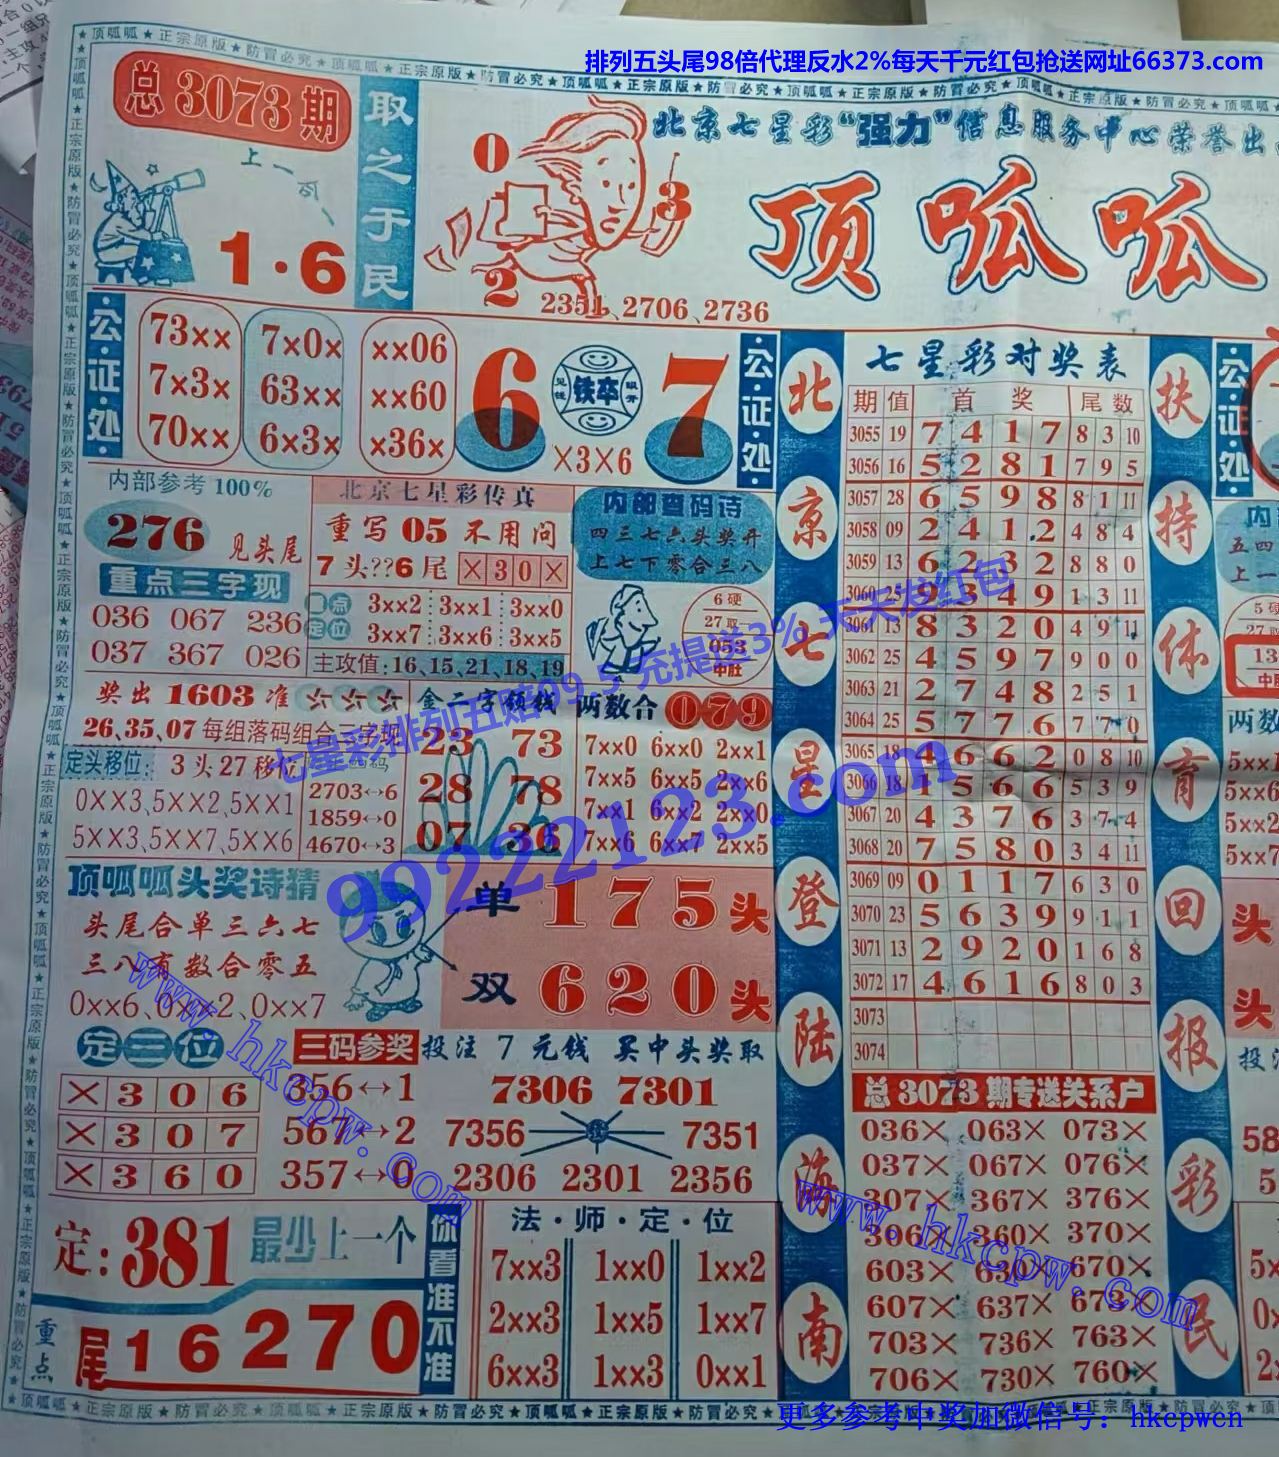 排列五头尾98倍代理反水2%每天千元红包抢送网址66373.com
★顶呱呱★正宗原版★防冒必究★顶呱呱★正宗原版★防冒必究★顶呱呱★正宗原版★防冒必究★顶呱呱★正宗原版★防冒必究★顶呱呱
总3073期
取之于民
上一佰八
1·6
0
3
2
2351、2706、2736
北京七星彩“强力”信息服务中心荣誉出
顶呱呱
公·证·处
73×× 7×0× ××06
7×3× 63×× ××60
70×× 6×3× ×36×
6 铁卒 7
×3×6
公·证·处
内部参考100%
276 见头尾
重点三字现
036 067 236
037 367 026
北京七星彩传真
重写05不用问
7头??6尾 ×30×
重点定位
3××2 3××1 3××0
3××7 3××6 3××5
主攻值:16、15、21、18、19
内部查码诗
四三七六头奖开
上七下零合三八
6硬
27取
053
中肚
奖出1603准
26、35、07每组落码组合三字现
定头移位: 3头27移位
0××3、5××2、5××1
5××3、5××7、5××6
2703↔6
1859↔0
4670↔3
金二字领钱
23 73
28 78
07 36
两数合079
7××0 6××0 2××1
7××5 6××5 2××6
7××1 6××2 2××0
7××6 6××7 2××5
顶呱呱头奖诗猜
头尾合单三六七
三八有数合零五
0××6、0××2、0××7
单 175头
双 620头
定三位
×306
×307
×360
三码参奖 投注7元钱 买中头奖取
356↔1
567↔2
357↔0
7306 7301
7356 7351
2306 2301 2356
定:381 最少上一个
重点 尾16270
你看准不准
法·师·定·位
7××3 1××0 1××2
2××3 1××5 1××7
6××3 1××3 0××1
北京七星登陆海南
七星彩对奖表
期 值 首奖 尾数
3055 19 7 4 1 7 8 3 10
3056 16 5 2 8 1 7 9 5
3057 28 6 5 9 8 8 1 11
3058 09 2 4 1 2 4 8 4
3059 13 6 2 3 2 8 8 0
3060 25 9 3 4 9 1 3 11
3061 13 8 3 2 0 4 9 11
3062 25 4 5 9 7 9 0 0
3063 21 2 7 4 8 2 5 1
3064 25 5 7 7 6 7 7 0
3065 18 4 6 6 2 0 8 10
3066 18 1 5 6 6 5 3 9
3067 20 4 3 7 6 3 7 4
3068 20 7 5 8 0 3 4 11
3069 09 0 1 1 7 6 3 0
3070 23 5 6 3 9 9 1 1
3071 13 2 9 2 0 1 6 8
3072 17 4 6 1 6 8 0 3
3073
3074
总3073期专送关系户
036× 063× 073×
037× 067× 076×
307× 367× 376×
306× 360× 370×
603× 630× 670×
607× 637× 673×
703× 736× 763×
706× 730× 760×
扶持体育回报彩民
公·证·处
内
五四
上一
5硬
27取
13
中肚
两数
5××1
5××6
5××2
5××7
头
头
投注
58
5
5×
0×
2×
七星彩排列五赔99.5 充提送3% 天天发红包
99222123.com
www.hkcpw.com
www.hkcpw.com
★顶呱呱★正宗原版★防冒必究★顶呱呱★正宗原版★防冒必究★顶呱呱★正宗原版★防冒必究★顶呱呱★正宗原版★防冒必究
更多参考中奖加微信号：hkcpwcn